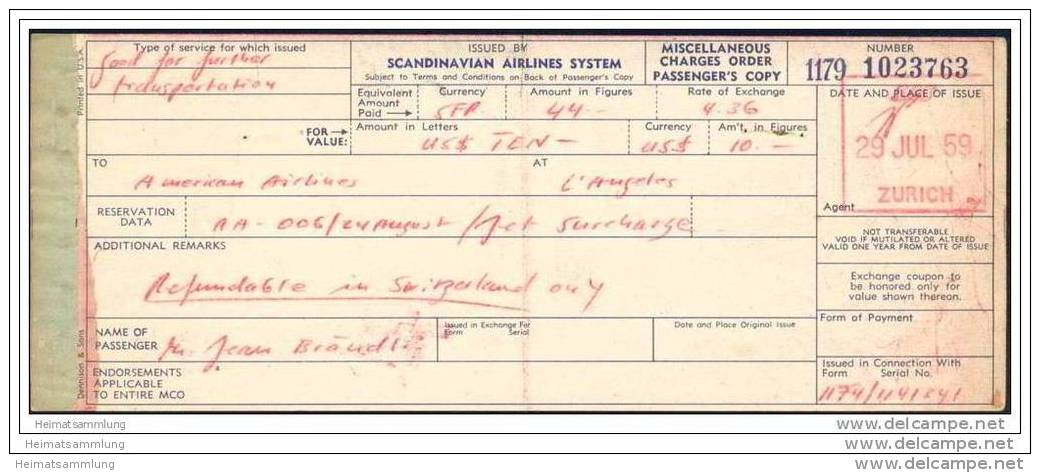 Type of service for which issued
Good for further
transportation
ISSUED BY
SCANDINAVIAN AIRLINES SYSTEM
Subject to Terms and Conditions on Back of Passenger's Copy
MISCELLANEOUS
CHARGES ORDER
PASSENGER'S COPY
NUMBER
1179 1023763
Equivalent
Amount
Paid →
Currency
SFR.
Amount in Figures
44.—
Rate of Exchange
4.36
DATE AND PLACE OF ISSUE
29 JUL 59
ZURICH
Agent
FOR →
VALUE:
Amount in Letters
US$ TEN —
Currency
US$
Am't. in Figures
10.—
TO
American Airlines
AT
L'Angeles
RESERVATION
DATA
AA - 006/24 August / Jet Surcharge
NOT TRANSFERABLE
VOID IF MUTILATED OR ALTERED
VALID ONE YEAR FROM DATE OF ISSUE
ADDITIONAL REMARKS
Refundable in Switzerland only
Exchange coupon to
be honored only for
value shown thereon.
Form of Payment
NAME OF
PASSENGER
Mr. Jean Brändli
Issued in Exchange For
Form Serial
Date and Place Original Issue
ENDORSEMENTS
APPLICABLE
TO ENTIRE MCO
Issued in Connection With
Form Serial No.
Printed in U.S.A.
Dennison & Sons
Heimatsammlung
Heimatsammlung
Heimatsammlung
www.delcampe.net
www.delcampe.net
www.delcampe.net